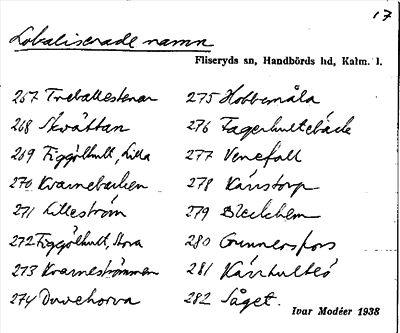 17
Lokaliserade namn
Fliseryds sn, Handbörds hd, Kalm. l.
267 Treballestenar
268 Skvättan
269 Figgölhult, Lilla
270 Kvarnebacken
271 Lilleström
272 Figgölhult, Stora
273 Kvarneströmmen
274 Duvehorva
275 Hobbemåla
276 Fagerhultebäck
277 Venefall
278 Kärstorp
279 Blecklchem
280 Gunnersfors
281 Kärrhulteö
282 Såget.
Ivar Modéer 1938